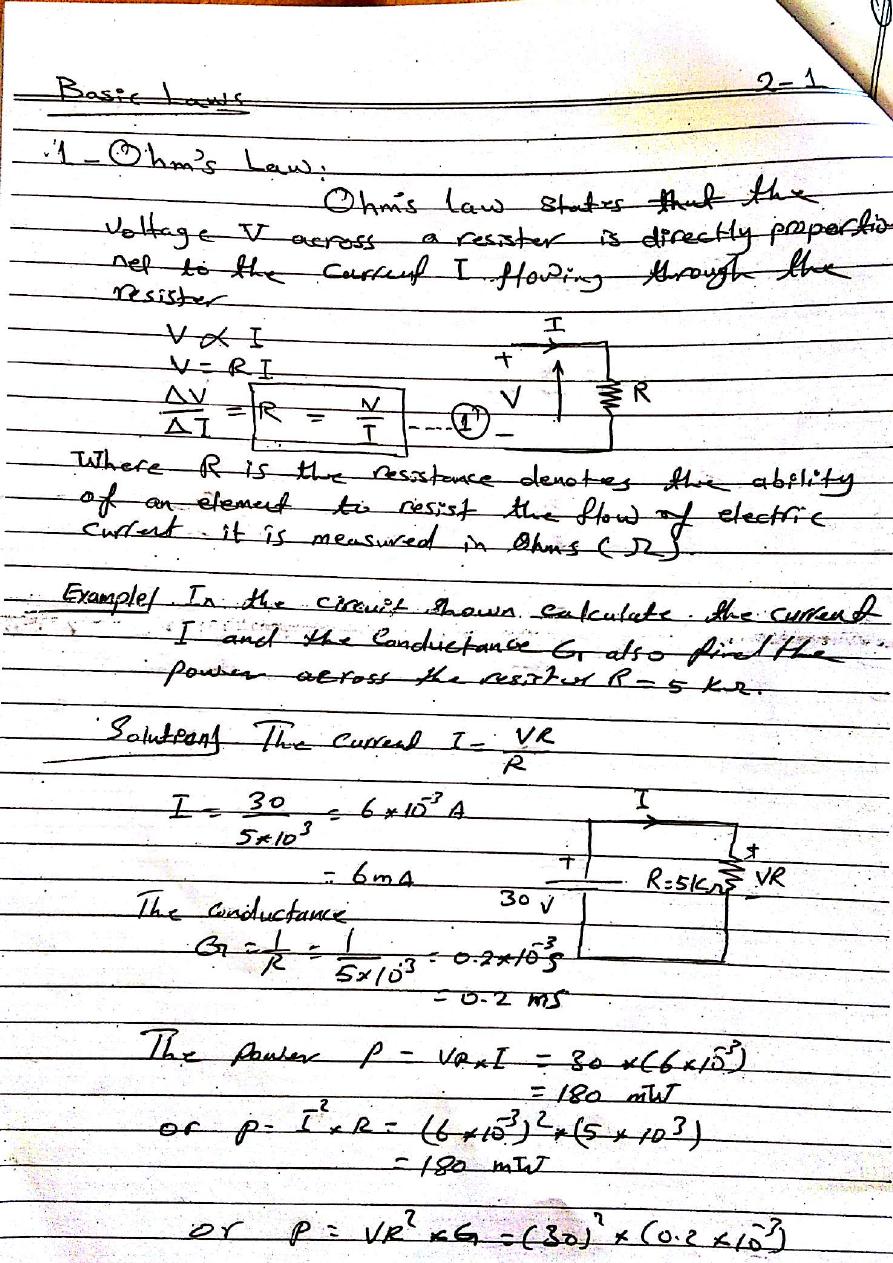 2-1
Basic Laws
1 - Ohm's Law:
Ohm's law states that the
Voltage V across a resister is directly propertio
nel to the Current I flowing through the
resister
V ∝ I
V = R I
ΔV/ΔI = R = V/I ---- 1
I
+
V
-
R
Where R is the resistance denotes the ability
of an element to resist the flow of electric
current. it is measured in Ohms (Ω).
Example/ In the circuit shown calculate the current
I and the Conductance G also find the
power across the resister R = 5 kΩ.
Solution/ The Current I = VR/R
I = 30/5*10³ = 6*10⁻³ A
= 6mA
I
+
30 V
R=5kΩ
+
VR
-
The Conductance
G = 1/R = 1/5×10³ = 0.2×10⁻³ S
= 0.2 mS
The power P = VR×I = 30 ×(6×10⁻³)
= 180 mW
or P = I² × R = (6×10⁻³)² × (5 × 10³)
= 180 mW
or P = VR² × G = (30)² × (0.2 ×10⁻³)